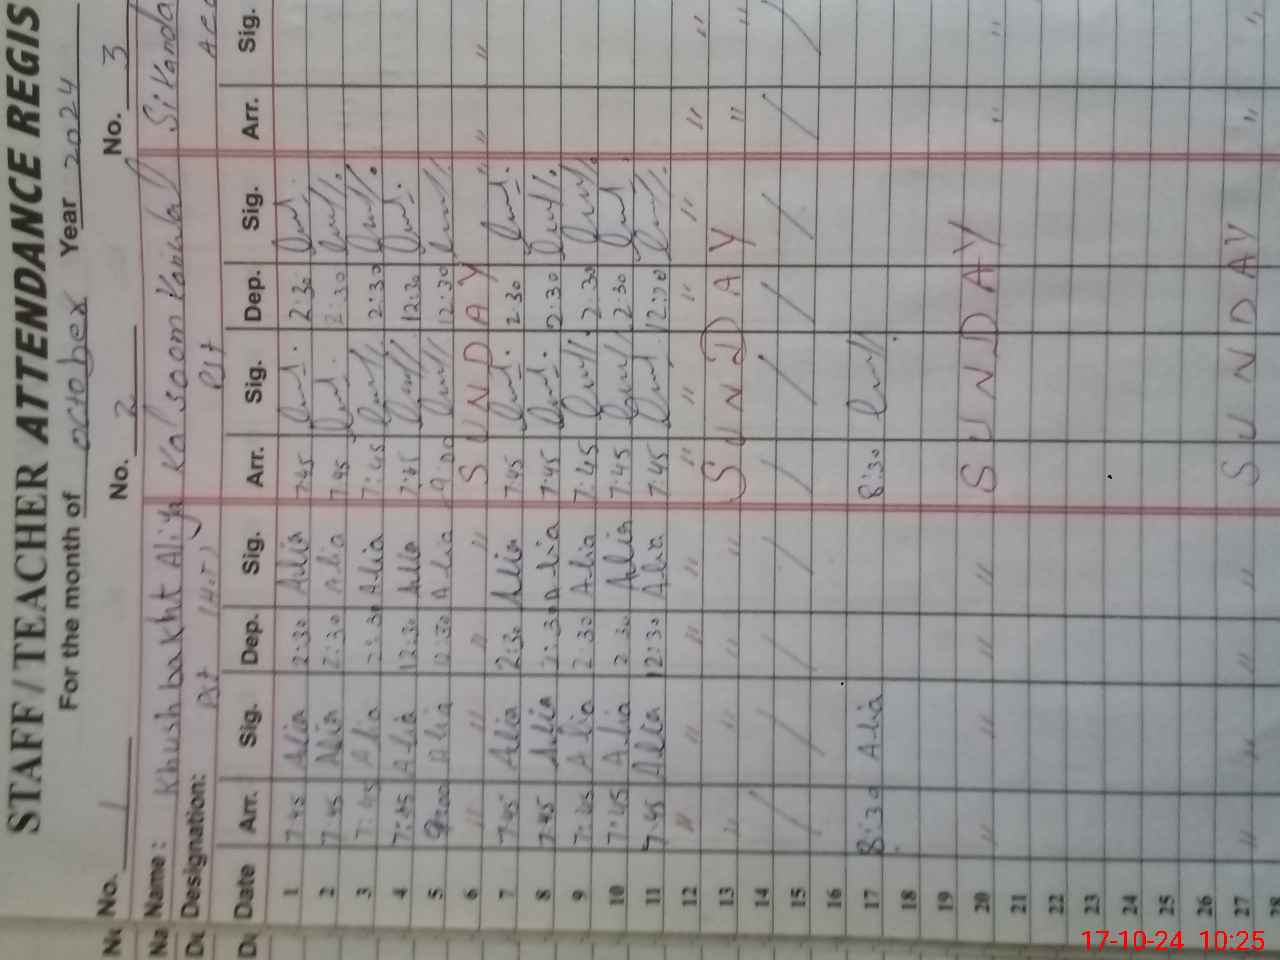 STAFF / TEACHER ATTENDANCE REGIS
For the month of october Year 2024
No. 1 No. 2 No. 3
Name: Khushbakht Aliya Kalsoom Sikanda
Designation: Pst PST
Date Arr. Sig. Dep. Sig. Arr. Sig. Dep. Sig. Arr. Sig.
1 7:45 Alia 2:30 Alia 7:45 2:30
2 7:45 Alia 2:30 Alia 7:45 2:30
3 7:45 Alia 2:30 Alia 7:45 2:30
4 7:45 Alia 12:30 Alia 7:45 12:30
5 9:00 Alia 12:30 Alia 9:00 12:30
6 " " " " SUNDAY " "
7 7:45 Alia 2:30 Alia 7:45 2:30
8 7:45 Alia 2:30 Alia 7:45 2:30
9 7:45 Alia 2:30 Alia 7:45 2:30
10 7:45 Alia 2:30 Alia 7:45 2:30
11 7:45 Alia 12:30 Alia 7:45 12:00
12 " " " " " " " " " "
13 " " " " SUNDAY " "
14
15 / / / / / / / / / /
16
17 8:30 Alia 8:30
18
19
20 " " " " SUNDAY " "
21
22
23
24
25
26
27 " " " " SUNDAY " "
28
17-10-24 10:25